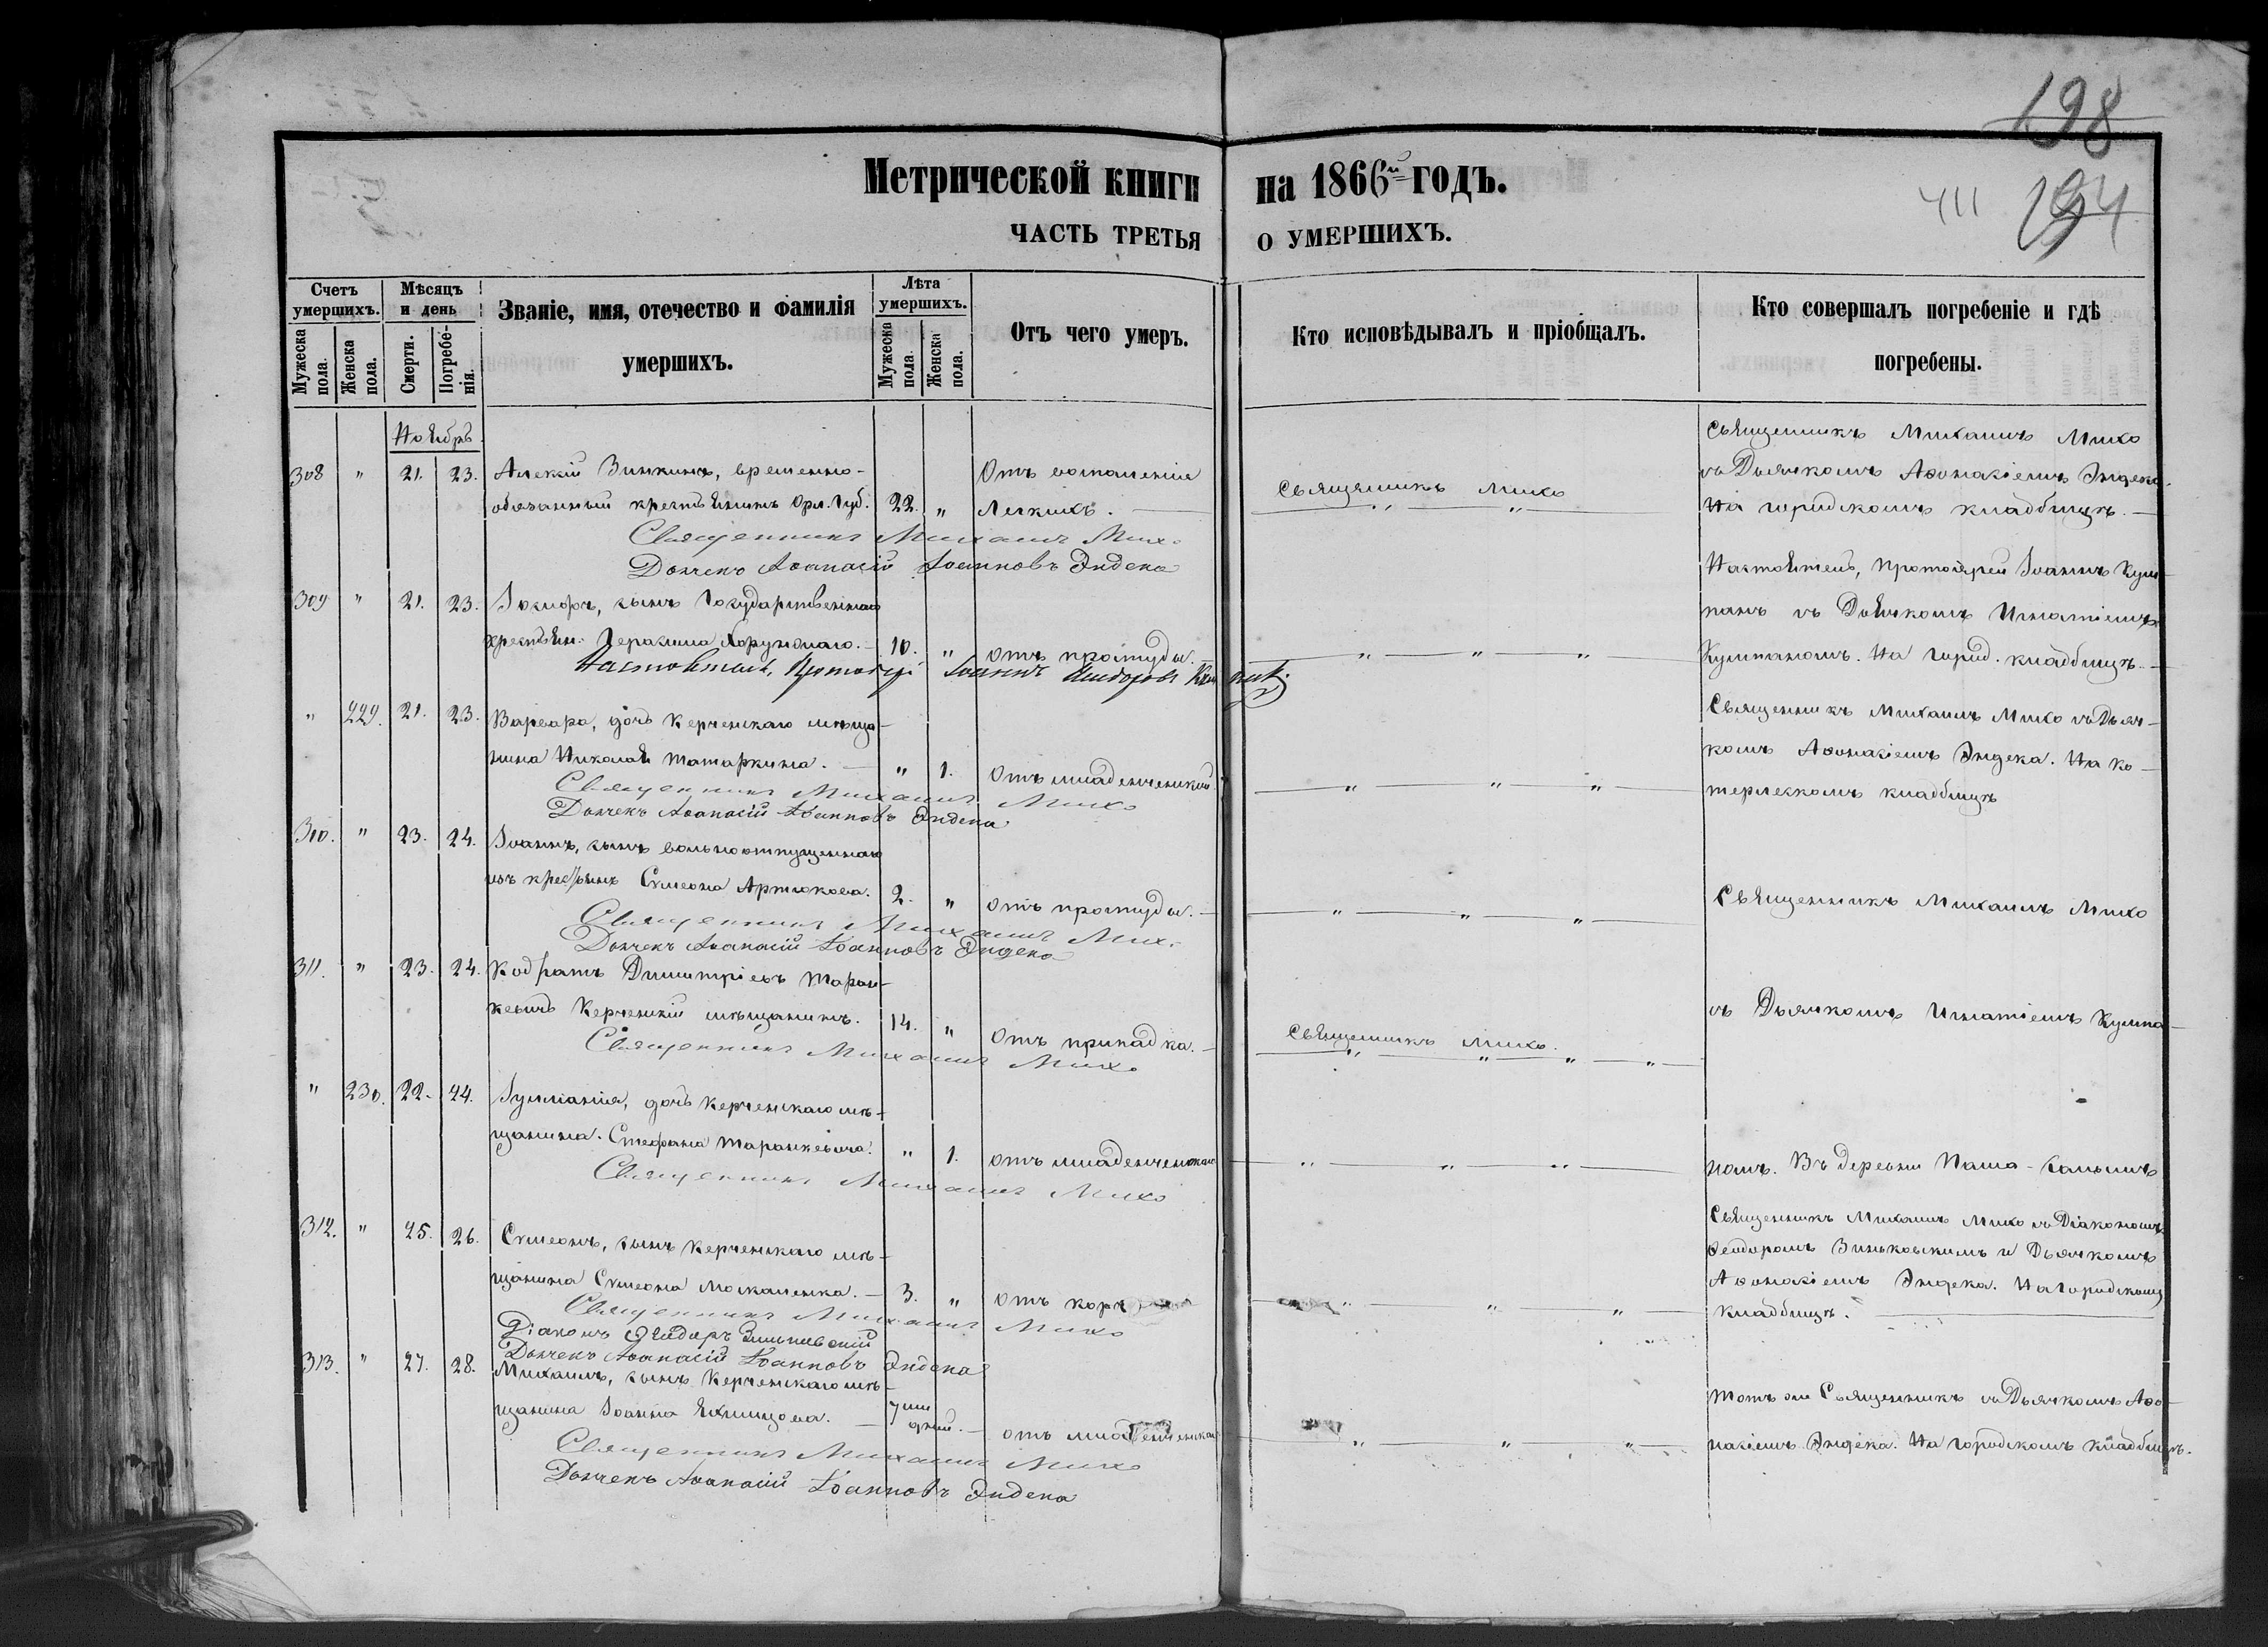 198
411 194
Метрической книги на 1866й годъ.
ЧАСТЬ ТРЕТЬЯ О УМЕРШИХЪ.
Счетъ умершихъ.
Мужеска пола.
Женска пола.
Мѣсяцъ и день
Смерти.
Погребе-нія.
Званіе, имя, отечество и фамилія
умершихъ.
Лѣта умершихъ.
Мужеска пола.
Женска пола.
Отъ чего умеръ.
Кто исповѣдывалъ и пріобщалъ.
Кто совершалъ погребеніе и гдѣ
погребены.
Ноябрь.
308 " 21. 23. Алексій Зинкинъ, временно-
обязанный крестьянинъ Орл. Губ. 22. "
Отъ воспаленія
Легкихъ.
Священникъ Михо
Священникъ Михаилъ Михо
съ Дьячкомъ Афонасіемъ Эндека.
На городскомъ кладбищѣ.
Священникъ Михаилъ Михо
Дьячекъ Аѳанасій Іоанновъ Эндека
309 " 21. 23. сынъ Государственнаго
крестьян. Герасима Хорунжаго. 10. " отъ простуды.
Настоятель, Протоіерей Іоаннъ Кум-
панъ съ Дьячкомъ Игнатіемъ
Кумпаномъ. На город. кладбищѣ.
Настоятель, Протоіерей Іоаннъ
" 229. 21. 23. Варвара, дочь Керченскаго мѣща-
нина Николая Татаркина. " 1. Отъ младенческой.
Священникъ Михаилъ Михо съ Дьяч-
комъ Афонасіемъ Эндека. На ко-
терлезкомъ кладбищѣ
Священникъ Михаилъ Михо
Дьячекъ Аѳанасій Іоанновъ Эндека
310. " 23. 24. Іоаннъ, сынъ вольноотпущеннаго
изъ крестьянъ Симеона Артюхова. 2. " отъ простуды.
Священникъ Михаилъ Михо
Священникъ Михаилъ Михо
Дьячекъ Аѳанасій Іоанновъ Эндека
311. " 23. 24. Кодратъ Димитріевъ Таран-
кевичъ Керченскій мѣщанинъ. 14. " Отъ припадка.
Священникъ Михо.
съ Дьячкомъ Игнатіемъ Кумпа-
Священникъ Михаилъ Михо
" 230. 22. 24. Іулианія, дочь Керченскаго мѣ-
щанина. Стефана Таранкевича. " 1. отъ младенческой
номъ. Въ деревни
Священникъ Михаилъ Михо
312. " 25. 26. Симеонъ, сынъ Керченскаго мѣ-
щанина Симеона Москаленка. 3. " отъ кори
Священникъ Михаилъ Михо съ Діакономъ
Феодоромъ Зиньковскимъ и Дьячкомъ
Афонасіемъ Эндека. На городскомъ
кладбищѣ.
Священникъ Михаилъ Михо
Діаконъ Ѳеодоръ Зиньковскій
Дьячекъ Аѳанасій Іоанновъ Эндека
313. " 27. 28. Михаилъ, сынъ Керченскаго мѣ-
щанина Іоанна 7ми дней. отъ младенческой
Тотъ же Священникъ съ Дьячкомъ Афо-
насіемъ Эндека. На городскомъ кладбищѣ.
Священникъ Михаилъ Михо
Дьячекъ Аѳанасій Іоанновъ Эндека